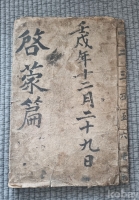 壬戌年十二月二十九日
啓蒙篇